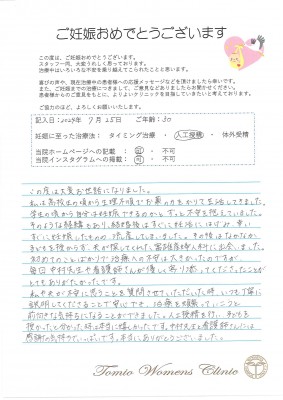 ご妊娠おめでとうございます
この度は、ご妊娠おめでとうございます。
スタッフ一同、大変うれしく思っております。
治療中はいろいろな不安を乗り越えてこられたことと思います。
喜びの声や、現在治療中の患者様への応援メッセージなどを頂けましたら幸いです。
また、妊娠までの治療につきまして、ご意見などありましたらお聞かせください。
患者様からのご意見をもとに、よりよいクリニックを目指していきたいと考えております。
ご協力のほど、よろしくお願いいたします。
記入日:2024年 7月 25日 ご年齢:30
妊娠に至った治療法: タイミング治療 ・ 人工授精 ・ 体外受精
当院ホームページへの記載: 可 ・ 不可
当院インスタグラムへの掲載: 可 ・ 不可
この度は大変お世話になりました。
私は高校生の頃から生理不順でお薬の力をかりて生活してきました。
学生の頃から自分は妊娠できるのかとずっと不安を抱えていました。
そのような経緒もあり、結婚後はすぐに妊活にはげみ、幸い
すぐに妊娠したものの流産してしまいました。その後はなかなか
子どもを授からず、夫が探してくれた富雄産婦人科に出会いました。
初めてのことばかりで治療への不安は大きかったのですが
毎回中村先生や看護師さんが優しく寄り添ってくださったことが
とてもありがたかったです。
私や夫が不安に思うことを質問させていただいた時、いつも丁寧に
説明してくださることで安心でき、治療を頑張っていこうと
前向きな気持ちになることができました。人工授精を行い、子どもを
授かったと分かった時は本当に嬉しかったです。中村先生と看護師さんには
感謝の気持ちでいっぱいです。本当にありがとうございました。
Tomio Womens Clinic